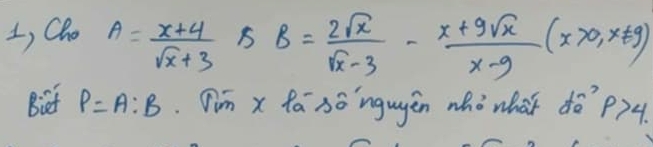 1, Cho A = \frac{x+4}{\sqrt{x}+3} & B = \frac{2\sqrt{x}}{\sqrt{x}-3} - \frac{x+9\sqrt{x}}{x-9} (x>0, x≠9)
Biết P=A:B. Tìm x là số nguyên nhỏ nhất để P>4.